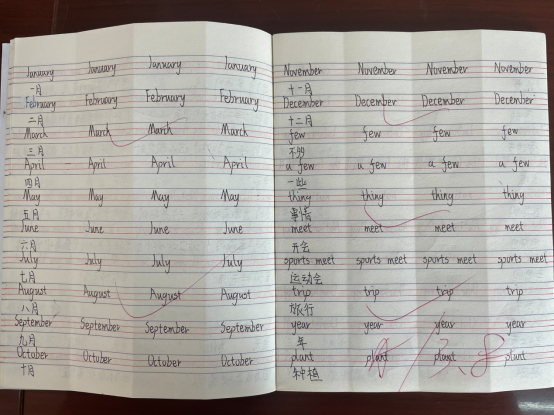 January January January January
一月
February February February February
二月
March March March March
三月
April April April April
四月
May May May May
五月
June June June June
六月
July July July July
七月
August August August August
八月
September September September September
九月
October October October October
十月
November November November November
十一月
December December December December
十二月
few few few few
不多
a few a few a few a few
一些
thing thing thing thing
事情
meet meet meet meet
开会
sports meet sports meet sports meet sports meet
运动会
trip trip trip trip
旅行
year year year year
年
plant plant plant plant
种植